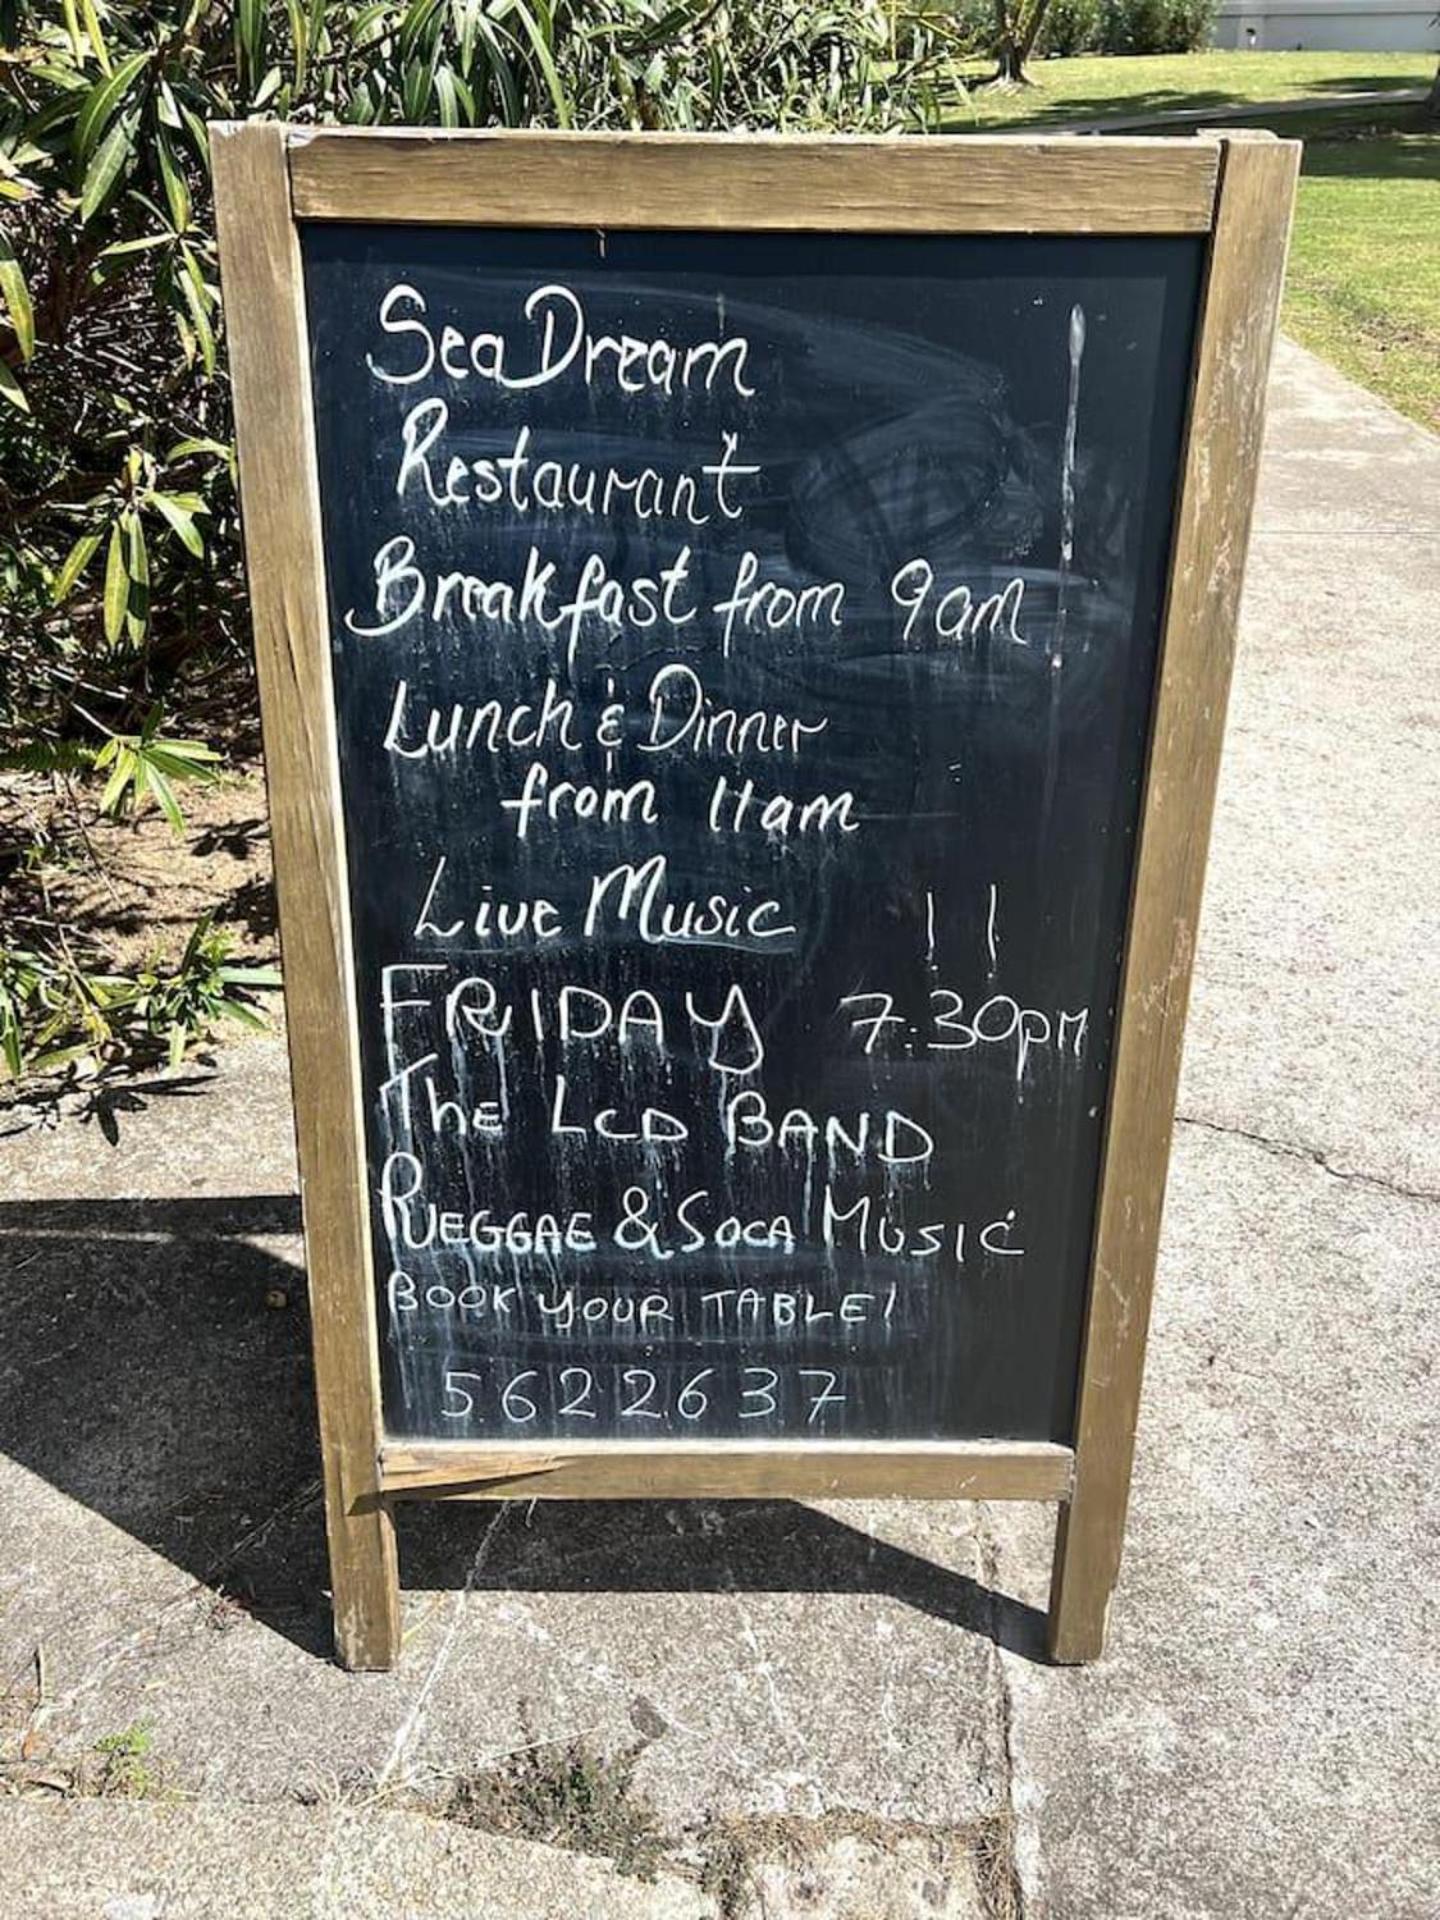 SeaDream
Restaurant
Breakfast from 9am
Lunch & Dinner
from 11am
Live Music !!
FRIDAY 7:30pm
The LCD BAND
REGGAE & SOCA MUSIC
BOOK YOUR TABLE!
5622637